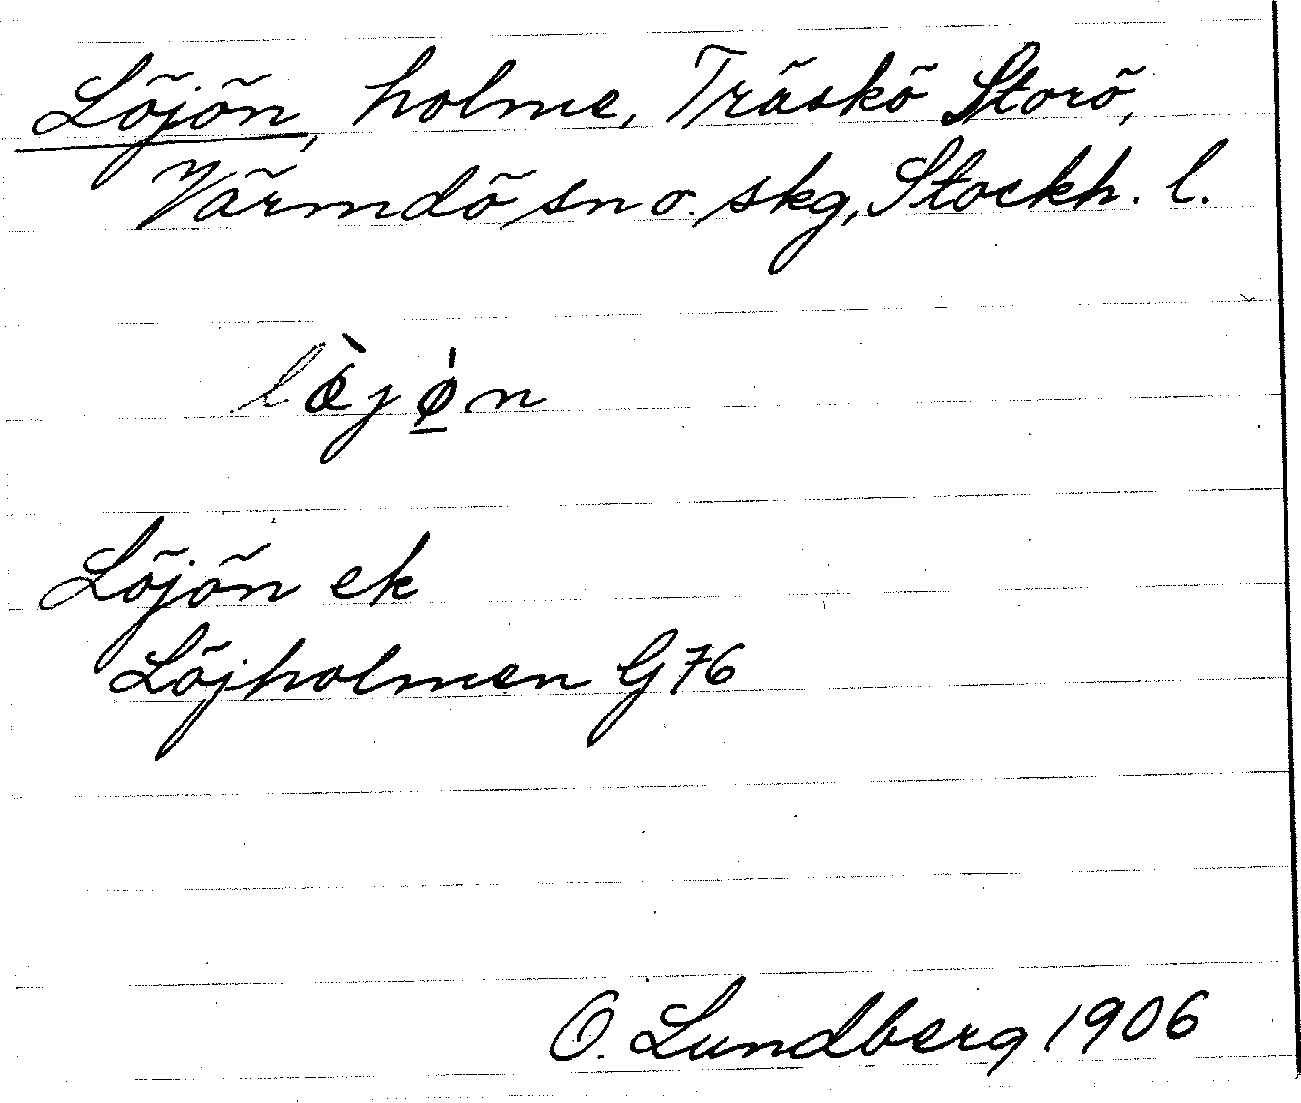 Löjön, holme, Träskö Storö,
Värmdö sn o. skg, Stockh. l.
lö̀jø̲̍n
Löjön ek
Löjholmen G76
O. Lundberg 1906